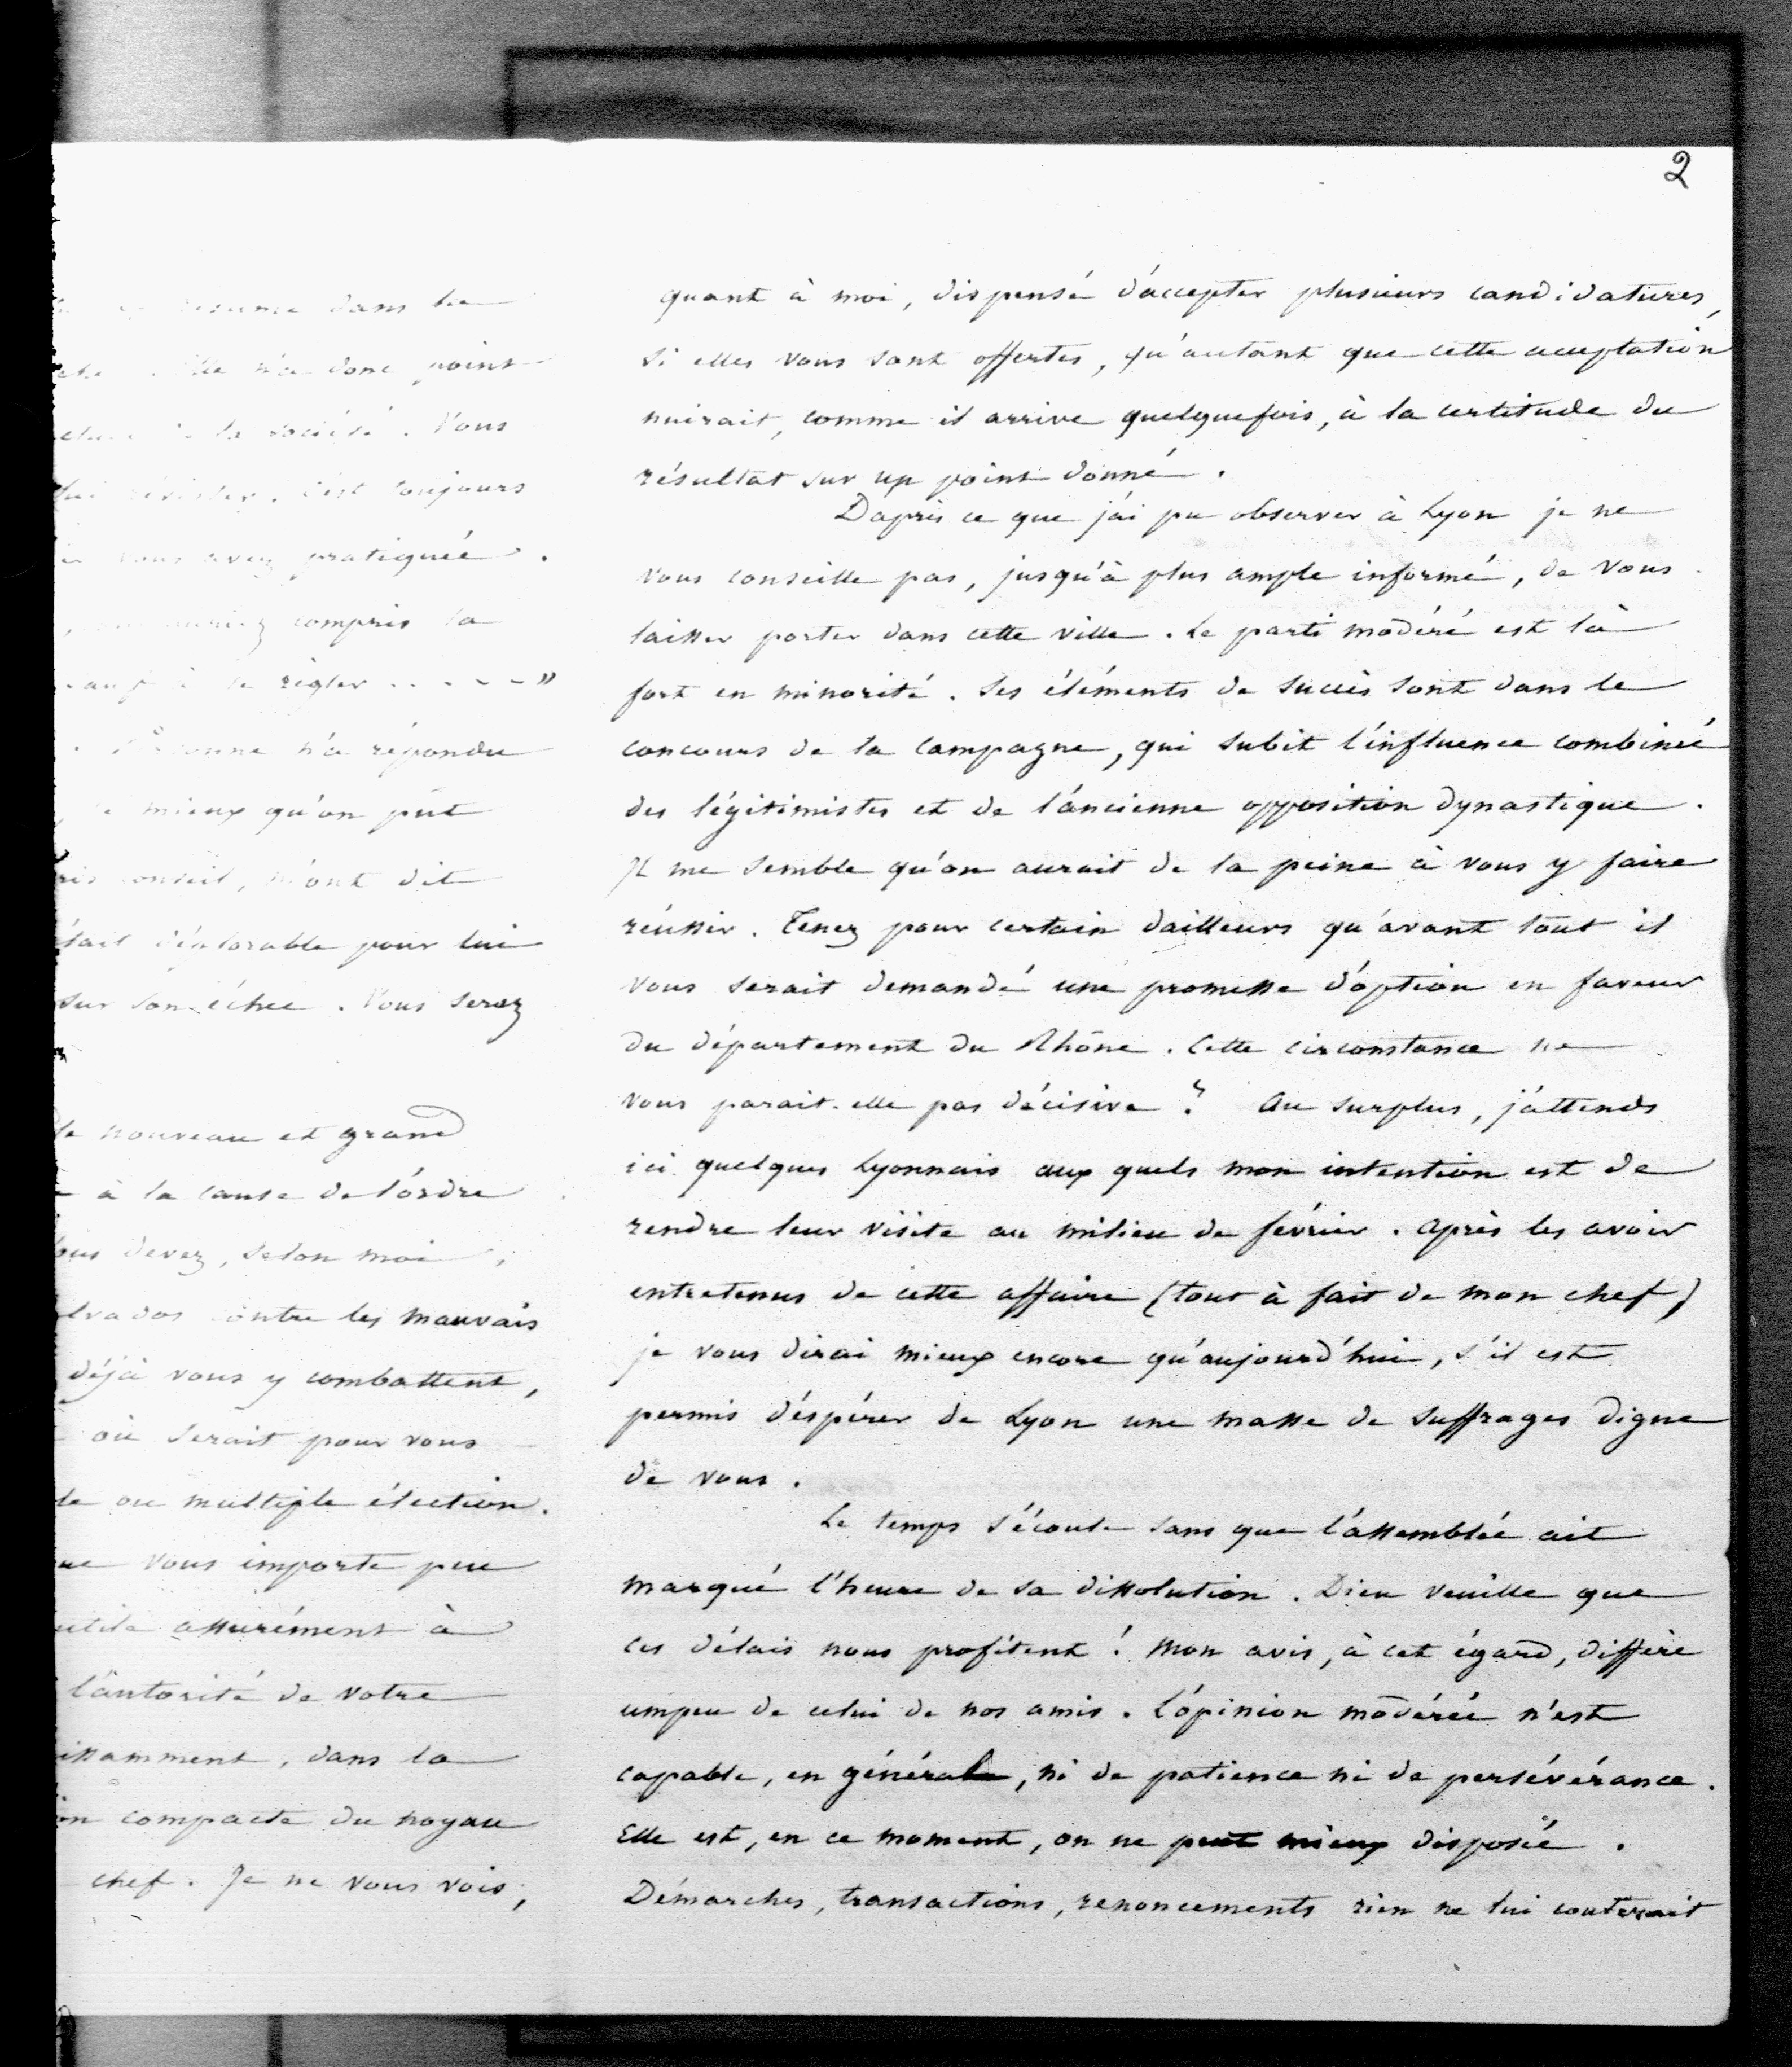 2
dans les
n'a donc point
la société. Vous
résister. C'est toujours
vous avez pratiquée.
compris la
le règler . . . . . "
n'a répondu
mieux qu'on pût
conseil, m'ont dit
déplorable pour lui
sur son échec. Vous serez
nouveau et grand
à la cause de l'ordre
devez, selon moi,
contre les mauvais
déjà vous y combattent,
où serait pour vous
ou multiple élection.
vous importe peu
assurément à
l'autorité de votre
dans la
compacte du noyau
chef. Je ne vous vois,
quant à moi, dispensé d'accepter plusieurs candidatures,
si elles vous sont offertes, qu'autant que cette acceptation
nuirait, comme il arrive quelquefois, à la certitude du
résultat sur un point donné.
D'après ce que j'ai pu observer à Lyon je ne
vous conseille pas, jusqu'à plus ample informé, de vous
laisser porter dans cette ville. Le parti modéré est là
fort en minorité. Ses éléments de succès sont dans le
concours de la campagne, qui subit l'influence combinée
des légitimistes et de l'ancienne opposition dynastique.
Il me semble qu'on aurait de la peine à vous y faire
réussir. Tenez pour certain d'ailleurs qu'avant tout il
vous serait demandé une promesse d'option en faveur
du département du Rhône. Cette circonstance ne
vous parait-elle pas décisive ? Au surplus, j'attends
ici quelques Lyonnais aux quels mon intention est de
rendre leur visite au milieu de février. Après les avoir
entretenus de cette affaire (tout à fait de mon chef)
je vous dirai mieux encore qu'aujourd'hui, s'il est
permis d'éspérer de Lyon une masse de suffrages digne
de vous.
Le temps s'écoule sans que l'assemblée ait
marqué l'heure de sa dissolution. Dieu veuille que
ces délais nous profitent ! Mon avis, à cet égard, diffère
un peu de celui de nos amis. L'opinion modérée n'est
capable, en général, ni de patience ni de persévérance.
Elle est, en ce moment, on ne peut mieux disposée.
Démarches, transactions, renoncements rien ne lui couterait